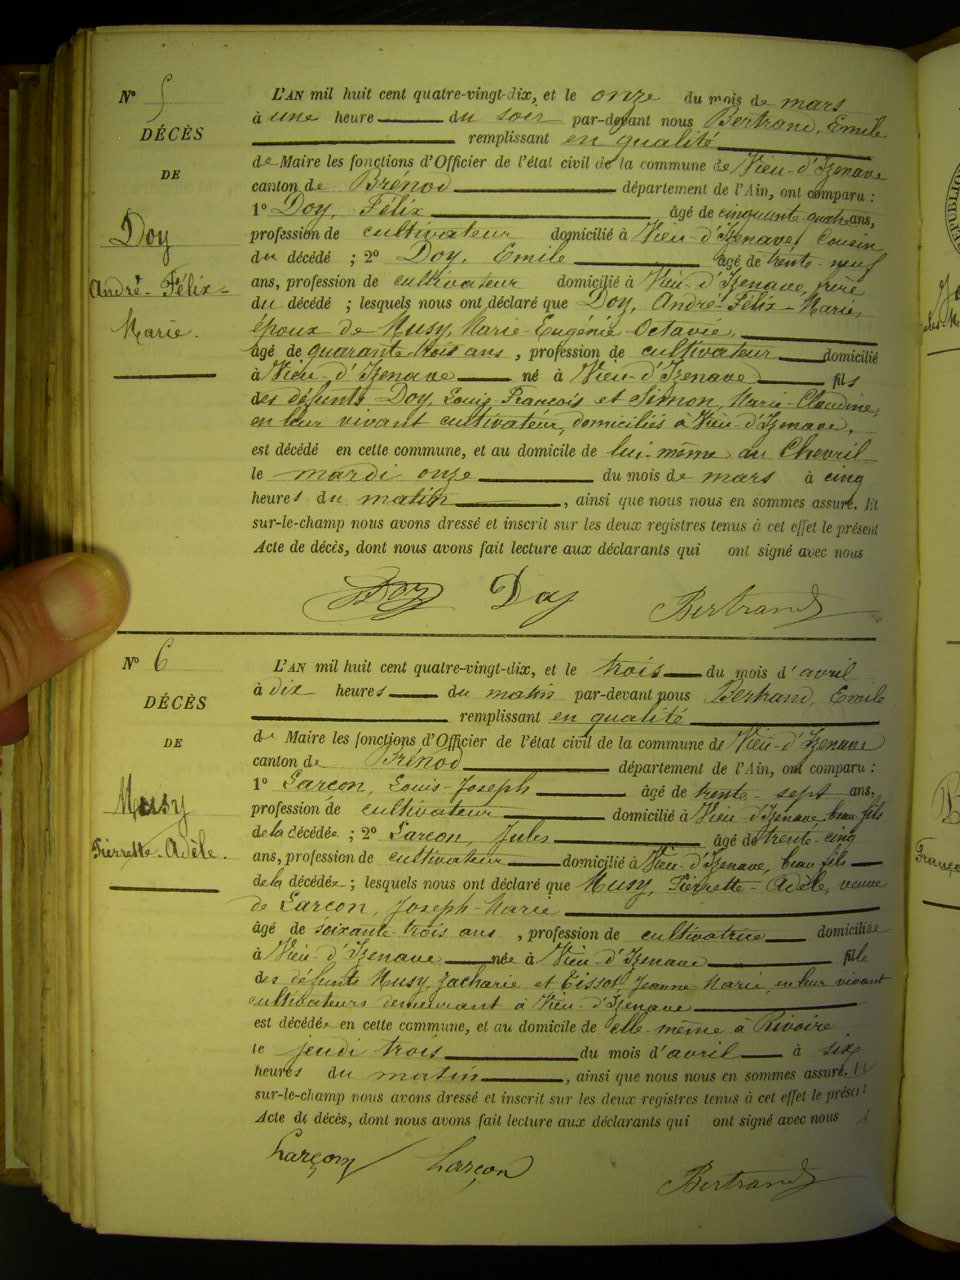 N° 5
DÉCÈS
DE
Doy
André-Félix-
Marie.
L'AN mil huit cent quatre-vingt-dix, et le onze du mois de mars
à une heure du soir par-devant nous Bertrand, Emile
remplissant en qualité
de Maire les fonctions d'Officier de l'état civil de la commune de Vieu-d'Izenave
canton de Brénod département de l'Ain, ont comparu :
1° Doy, Félix âgé de cinquante quatre ans,
profession de cultivateur domicilié à Vieu-d'Izenave, cousin
du décédé ; 2° Doy, Emile âgé de trente-neuf
ans, profession de cultivateur domicilié à Vieu-d'Izenave, frère
du décédé ; lesquels nous ont déclaré que Doy, André-Félix-Marie,
époux de Musy, Marie-Eugénie-Octavie,
âgé de quarante trois ans, profession de cultivateur domicilié
à Vieu-d'Izenave né à Vieu-d'Izenave fils
des défunts Doy, Louis-François et Simon, Marie-Claudine,
en leur vivant cultivateur, domiciliés à Vieu-d'Izenave,
est décédé en cette commune, et au domicile de lui-même au Chevril
le mardi onze du mois de mars à cinq
heures du matin, ainsi que nous nous en sommes assuré. Et
sur-le-champ nous avons dressé et inscrit sur les deux registres tenus à cet effet le présent
Acte de décès, dont nous avons fait lecture aux déclarants qui ont signé avec nous
Doy Doy Bertrand
N° 6
DÉCÈS
DE
Musy
Pierrette-Adèle.
L'AN mil huit cent quatre-vingt-dix, et le trois du mois d'avril
à dix heures du matin par-devant nous Bertrand, Emile
remplissant en qualité
de Maire les fonctions d'Officier de l'état civil de la commune de Vieu-d'Izenave
canton de Brénod département de l'Ain, ont comparu :
1° Larçon, Louis-Joseph âgé de trente-sept ans,
profession de cultivateur domicilié à Vieu-d'Izenave beau fils
de la décédée ; 2° Larçon, Jules âgé de trente-cinq
ans, profession de cultivateur domicilié à Vieu-d'Izenave, beau fils
de la décédée ; lesquels nous ont déclaré que Musy, Pierrette-Adèle, veuve
de Larçon, Joseph-Marie
âgé de soixante-trois ans, profession de cultivatrice domiciliée
à Vieu-d'Izenave née à Vieu-d'Izenave fille
des défunts Musy, Zacharie et Tissot, Jeanne-Marie, en leur vivant
cultivateurs demeurant à Vieu-d'Izenave
est décédée en cette commune, et au domicile de elle-même à Rivoire
le jeudi trois du mois d'avril à six
heures du matin, ainsi que nous nous en sommes assuré. Et
sur-le-champ nous avons dressé et inscrit sur les deux registres tenus à cet effet le présent
Acte de décès, dont nous avons fait lecture aux déclarants qui ont signé avec nous
Larçon Larçon Bertrand